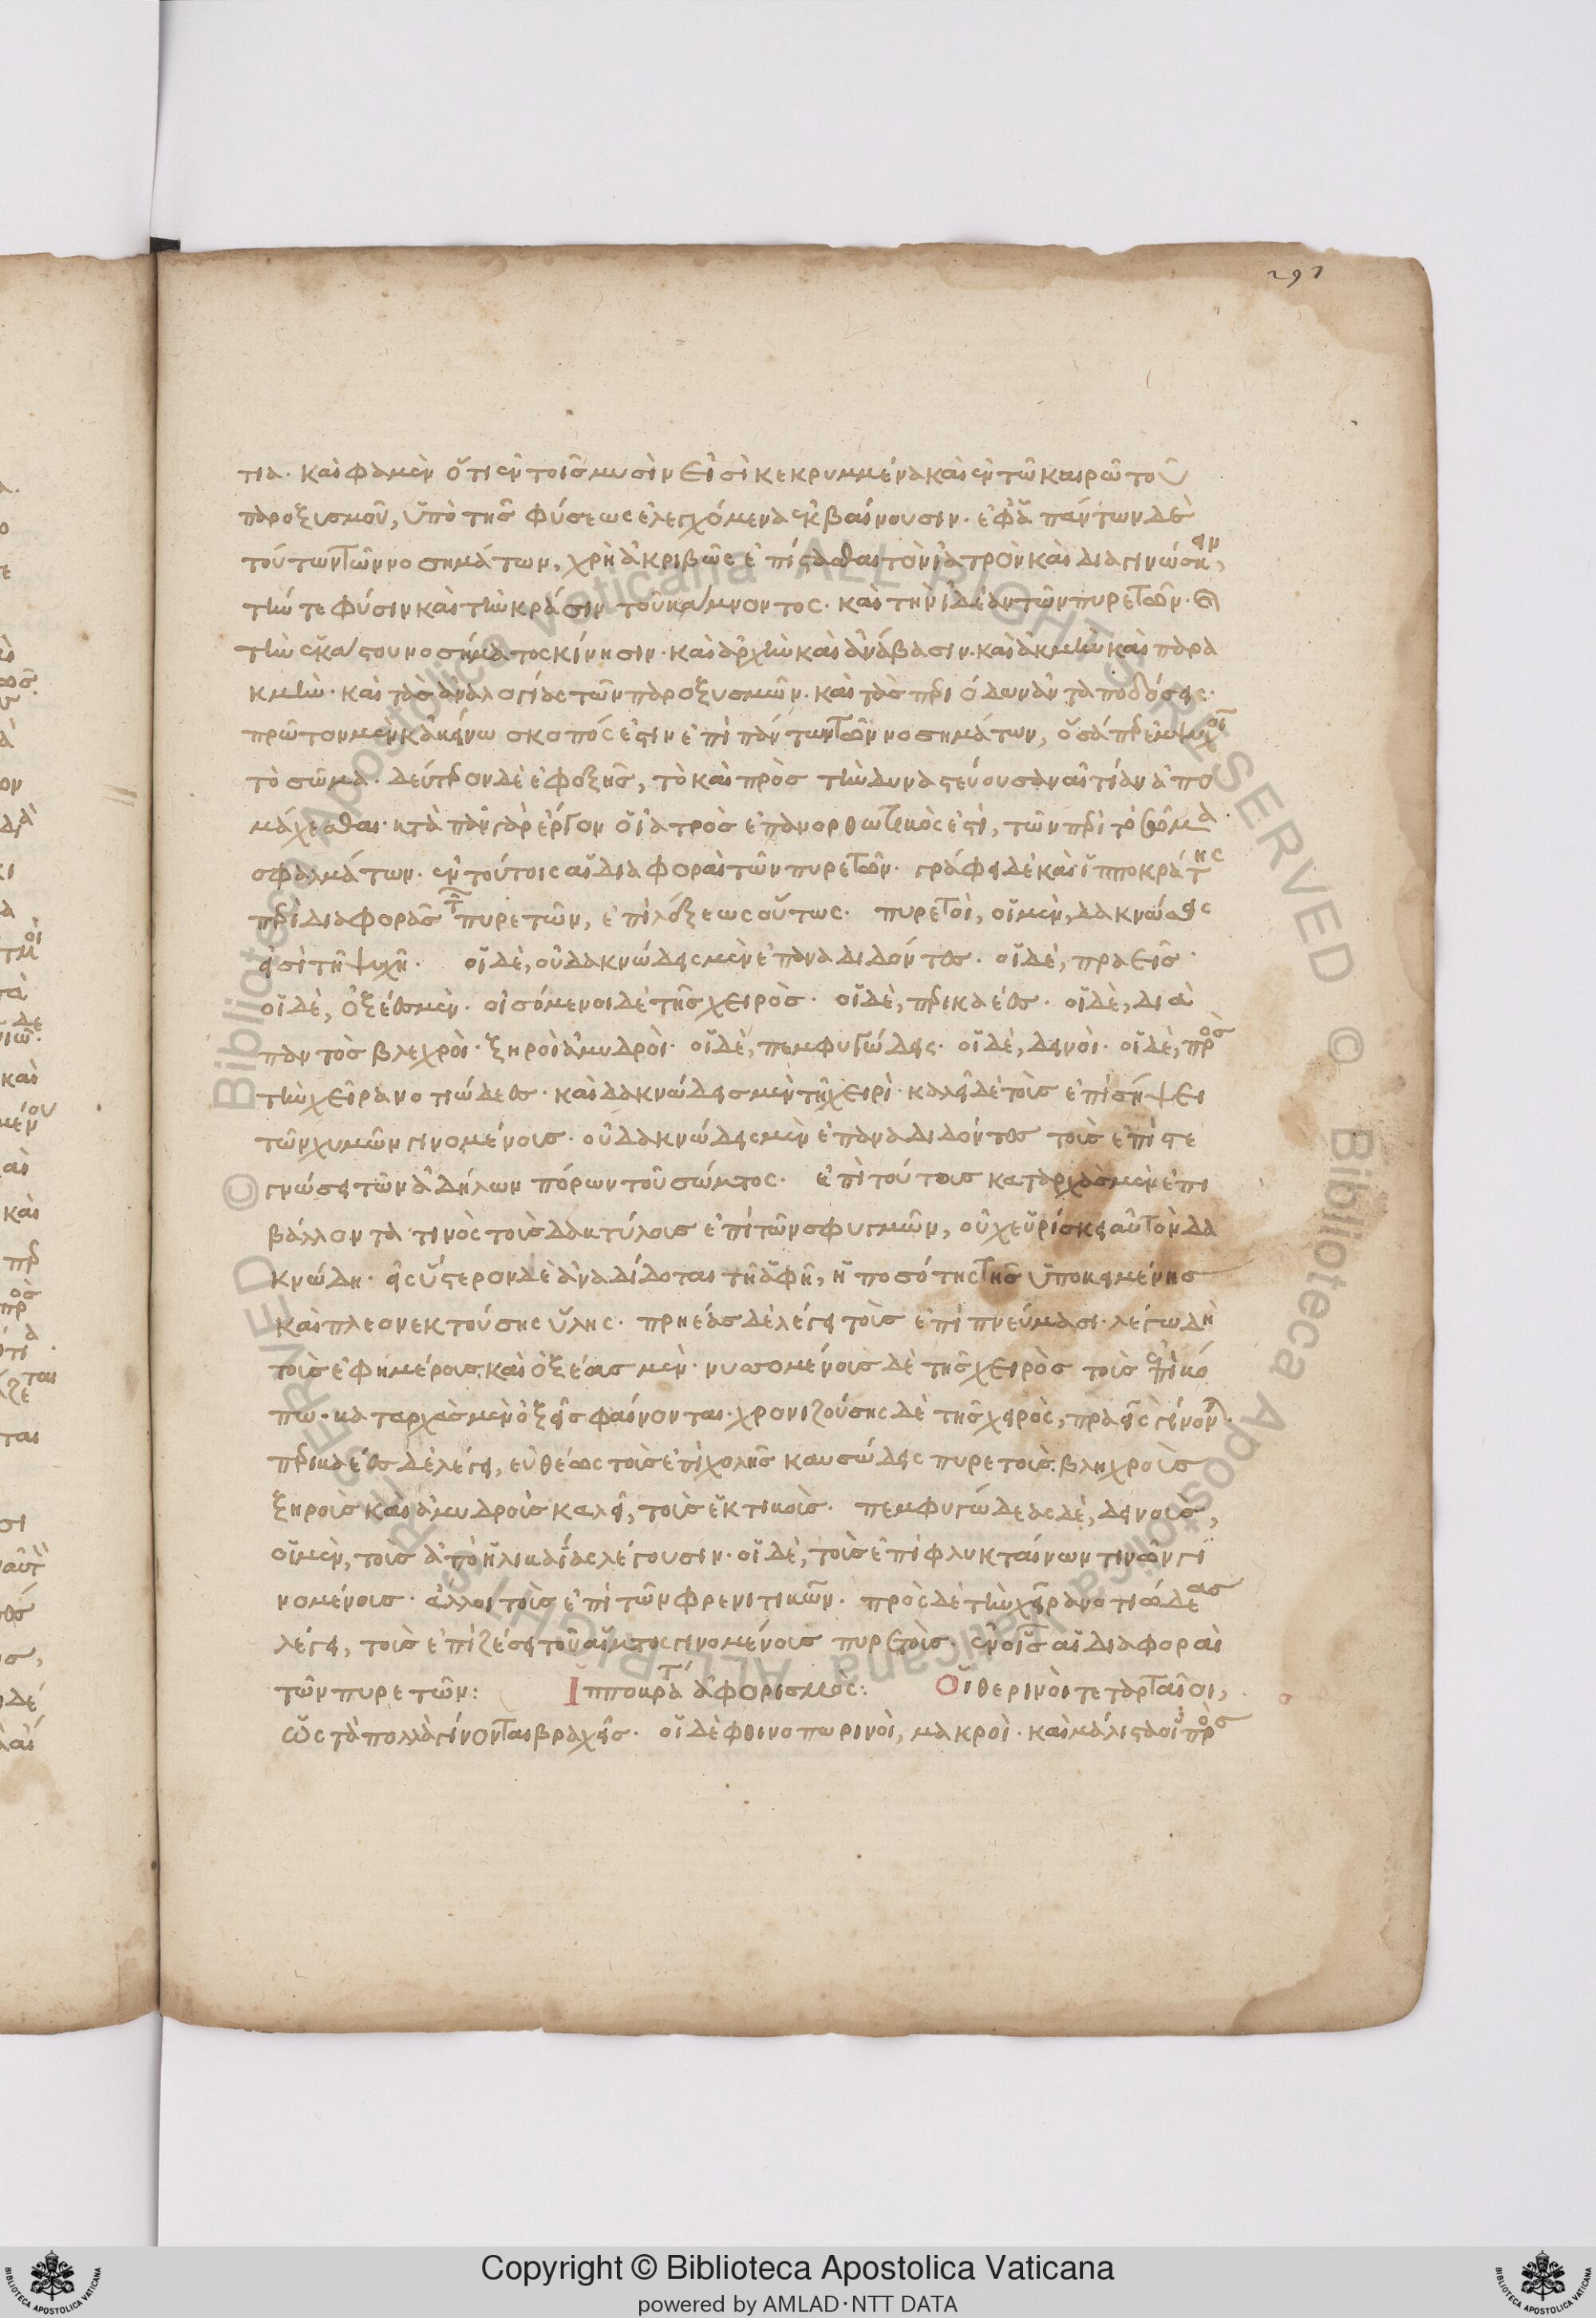 291
τια· καὶ φαμὲν ὅτι ἐν τοῖς μυσὶν εἰσὶ κεκρυμμένα καὶ ἐν τῶ καιρῶ τοῦ
παροξισμοῦ, ὑπὸ τῆς φύσεως ἐλεγχόμενα ἐκβαίνουσιν· ἐφ' ἃ πάντων δὲ
τούτων τῶν νοσημάτων, χρὴ ἀκριβῶς ἐπίστασθαι τὸν ἰατρὸν καὶ διαγινώσκειν,
τήν τε φύσιν καὶ τὴν κράσιν τοῦ κάμνοντος· καὶ τὴν ἰδέαν τῶν πυρετῶν·
τὴν ἑκάστου νοσήματος κίνησιν· καὶ ἀρχὴν καὶ ἀνάβασιν· καὶ ἀκμὴν καὶ παρα
κμὴν· καὶ τὰς ἀναλογίας τῶν παροξυσμῶν· καὶ τὰς ἀνταποδόσεις·
πρῶτον μὲν σκοπός ἐστιν ἐπὶ πάντων τῶν νοσημάτων,
τὸ σῶμα· δεύτερον δὲ ἐφεξῆς, τὸ καὶ πρὸς τὴν δυναστεύουσαν αἰτίαν ἀπο
μάχεσθαι· κατὰ πᾶν γὰρ ἔργον ὁ ἰατρὸς ἐπανορθωτικός ἐστι, τῶν περὶ τὸ σῶμα
σφαλμάτων· ἐν τούτοις αἱ διαφοραὶ τῶν πυρετῶν· γράφει δὲ καὶ ἱπποκράτης
περὶ διαφορᾶς τῶν πυρετῶν, ἐπὶ λέξεως οὕτως· πυρετοὶ, οἱ μὲν, δακνώδεις
εἰσὶ τῇ ψυχῇ· οἱ δὲ, οὐ δακνώδεις μὲν ἐπαναδιδόντες· οἱ δὲ, πραεῖς·
οἱ δὲ, ὀξέες μὲν· δὲ τῆς χειρὸς· οἱ δὲ, περικαέες· οἱ δὲ, δια
παντὸς βλεχροὶ· ξηροὶ ἀμυδροὶ· οἱ δὲ, πεμφυγώδεις· οἱ δὲ, δεινοὶ· οἱ δὲ, πρὸς
τὴν χεῖρα νοτιώδεες· καὶ δακνώδεις μὲν τῇ χειρὶ· καλεῖ δὲ τοὺς ἐπὶ σήψει
τῶν χυμῶν γινομένους· οὐ δακνώδεις μὲν ἐπαναδιδόντες τοὺς ἐπὶ στε
γνώσει τῶν ἀδήλων πόρων τοῦ σώματος· ἐπὶ τούτοις καταρχὰς μὲν ἐπι
βάλλοντα τινὸς τοὺς δακτύλους ἐπὶ τῶν σφυγμῶν, οὐχ εὑρίσκει αὐτὸν δα
κνώδη· εἰς ὕστερον δὲ ἀναδίδοται τῇ ἀφῇ, ἡ ποσότης τῆς ὑποκειμένης
καὶ πλεονεκτούσης ὕλης· πρηέας δὲ λέγει τοὺς ἐπὶ πνεύμασι· λέγω δὴ
τοὺς ἐφημέρους· καὶ ὀξέας μὲν· νυσσομένους δὲ τῆς χειρὸς τοὺς ἐπὶ κό
πω· καταρχὰς μὲν ὀξεῖς φαίνονται· χρονιζούσης δὲ τῆς χειρὸς, πραεῖς γίνονται·
περικαέες δὲ λέγει, εὐθέως τοὺς ἐπὶ χολῆς καυσώδεις πυρετοὺς· βληχροὺς
ξηροὺς καὶ ἀμυδροὺς καλεῖ, τοὺς ἑκτικοὺς· πεμφυγώδεας δὲ, δεινοὺς,
οἱ μὲν, τοὺς ἀπὸ λέγουσιν· οἱ δὲ, τοὺς ἐπὶ φλυκταίνων τινῶν γι
νομένους· ἄλλοι τοὺς ἐπὶ τῶν φρενιτικῶν· πρὸς δὲ τὴν χεῖρα νοτιώδεας
λέγει, τοὺς ἐπὶ ζέσει τοῦ αἵματος γινομένους πυρετοὺς· ἐν οἷς αἱ διαφοραὶ
τῶν πυρετῶν: Ἱπποκράτ ἀφορισμὸς: Οἱ θερινοὶ τεταρταῖοι,
ὡς τὰ πολλὰ γίνονται βραχεῖς· οἱ δὲ φθινοπωρινοὶ, μακροὶ· καὶ μάλιστα οἱ πρὸς
Copyright © Biblioteca Apostolica Vaticana
powered by AMLAD·NTT DATA